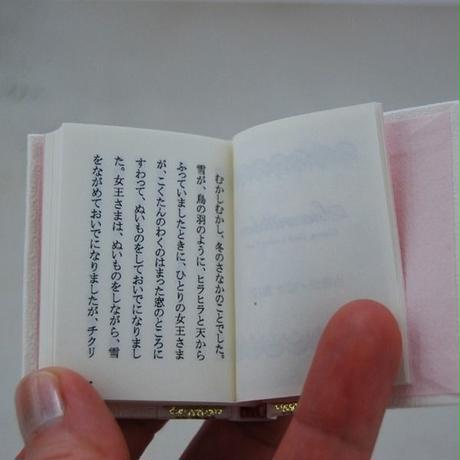 むかしむかし、冬のさなかのことでした。
雪が、鳥の羽のように、ヒラヒラと天から
ふっていましたときに、ひとりの女王さま
が、こくたんのわくのはまった窓のところに
すわって、ぬいものをしておいでになりまし
た。女王さまは、ぬいものをしながら、雪
をながめておいでになりましたが、チクリ